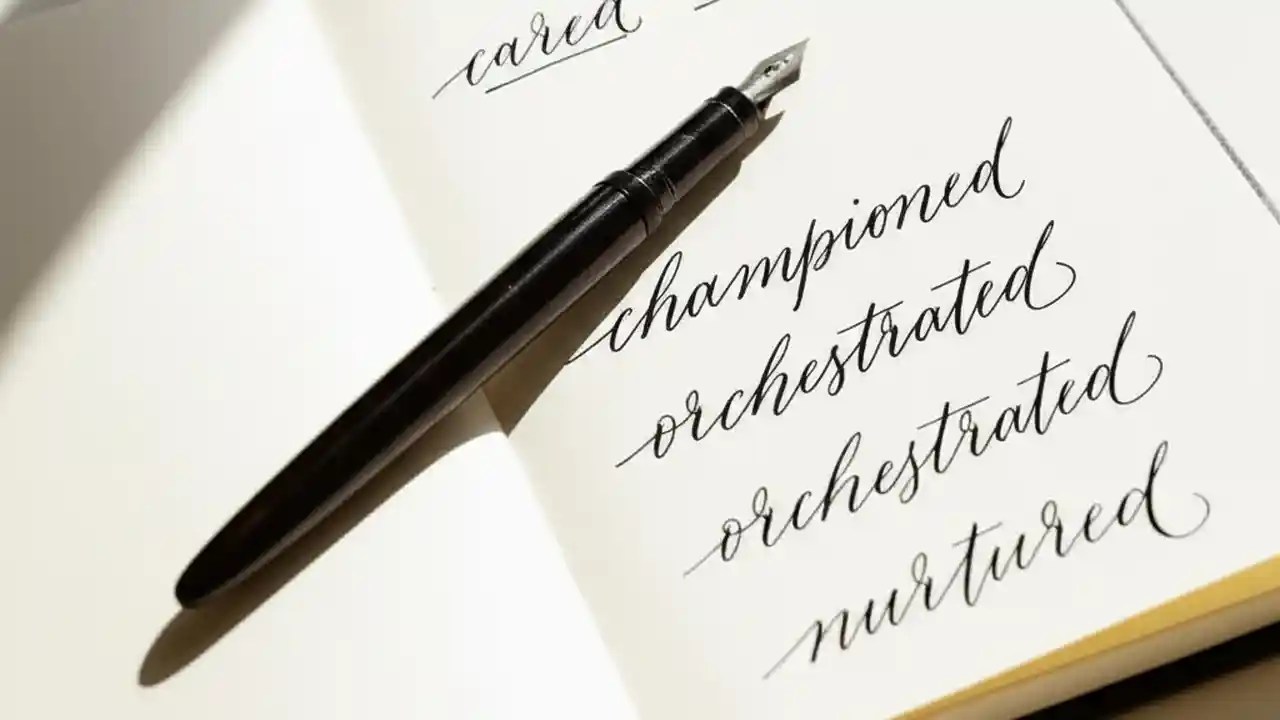 cared
championed
orchestrated
orchestrated
nurtured